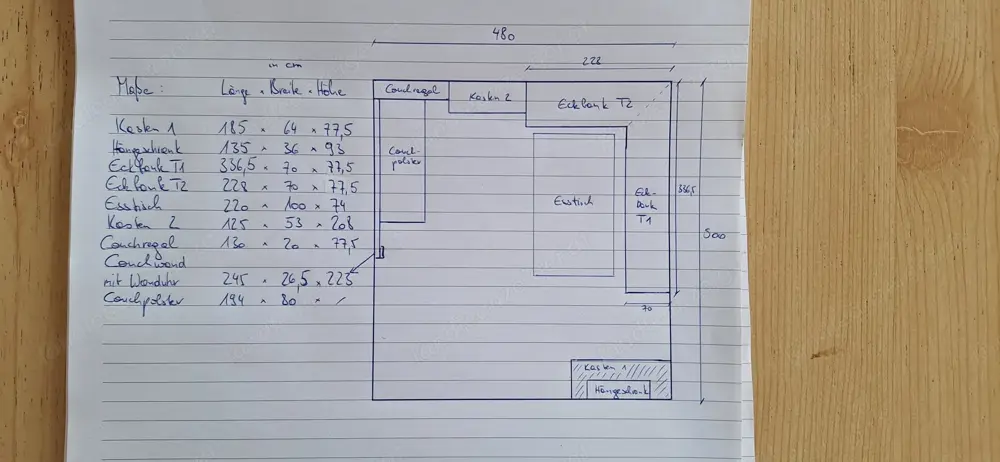 in cm
Maße: Länge × Breite × Höhe
Kasten 1 185 × 64 × 77,5
Hängeschrank 135 × 36 × 93
Eckbank T1 336,5 × 70 × 77,5
Eckbank T2 228 × 70 × 77,5
Esstisch 220 × 100 × 74
Kasten 2 125 × 53 × 208
Couchregal 130 × 20 × 77,5
Couchwand
mit Wanduhr 245 × 26,5 × 225
Couchpolster 194 × 80 × /
480
228
Couchregal
Kasten 2
Eckbank T2
Couch-
polster
Esstisch
Eck-
bank
T1
336,5
500
70
Kasten 1
Hängeschrank